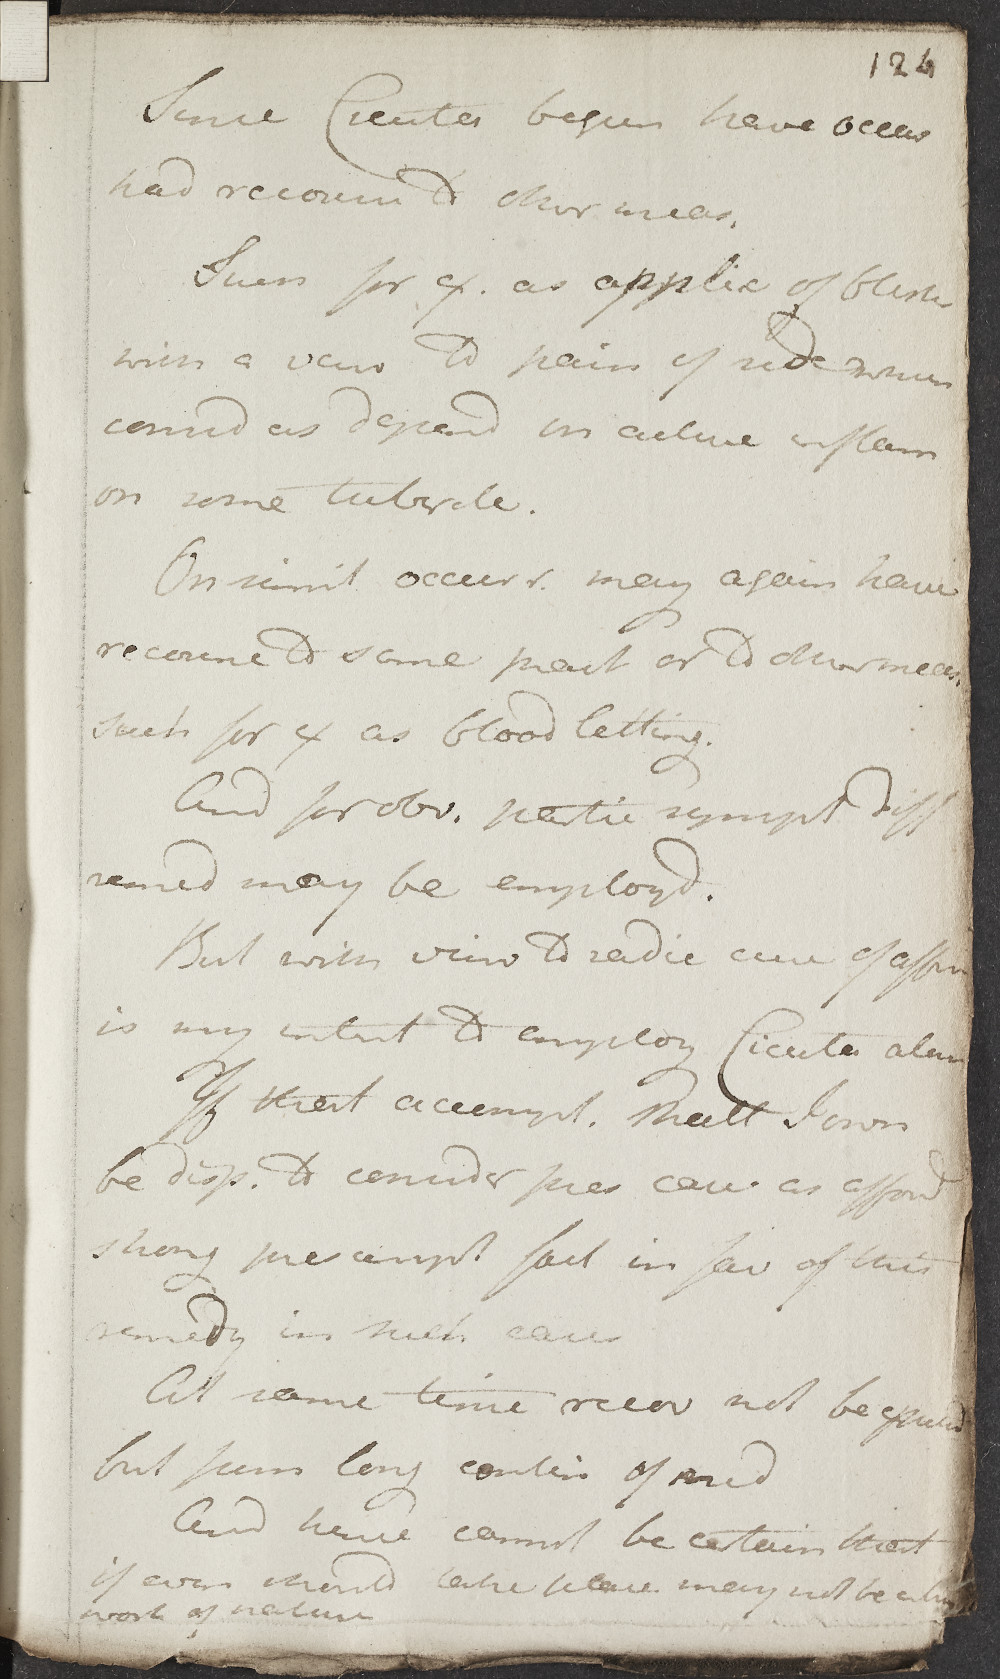 124
Since Cicuta begun have occas
had recourse to other meas.
Such for ex. as applic of blister
with a view to pain of side when
consid as depend on active inflam
on some tubercle.
On simil occurr. may again have
recourse to same pract or to other meas.
such for ex as blood letting.
And for obv. partic sympt diff
remed may be employd.
But with view to radic cure of affon
is my intent to employ Cicuta alone
If that accompl. shall I own
be disp. to consider pres case as afford
strong presumpt fact in fav of this
remedy in such cases
At same time recov not be expected
but from long contin of med
And hence cannot be certain that
if even should take place may not be
work of nature